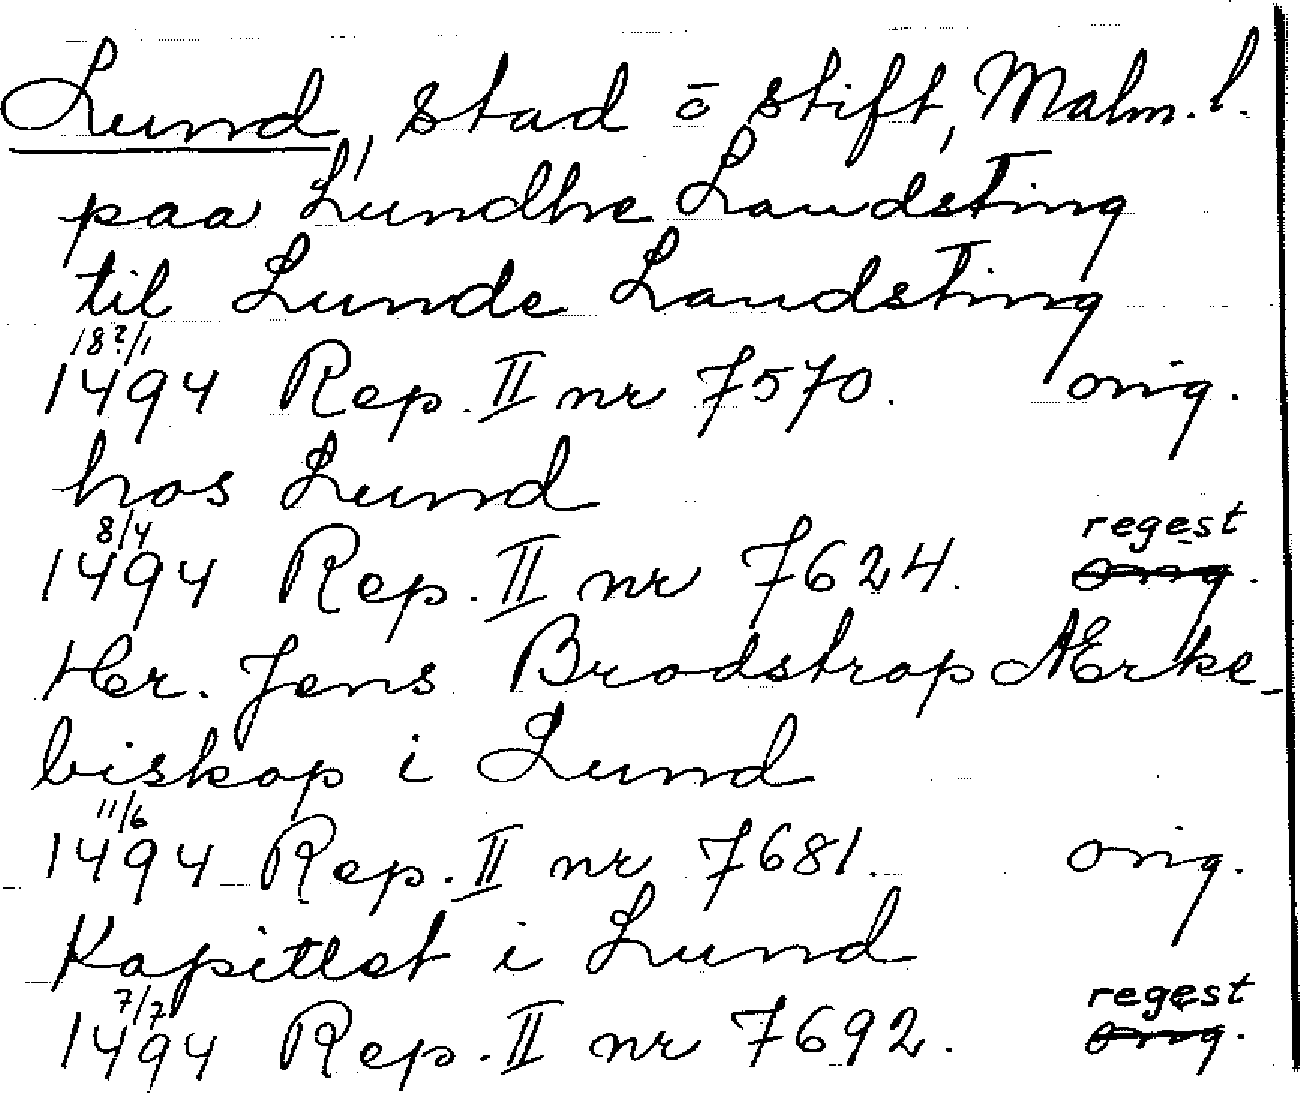 Lund, stad ō stift, Malm. l.
paa Lundhe Landsting
til Lunde Landsting
18?/1
1494 Rep. II nr 7570. orig.
hos Lund
8/4 regest
1494 Rep. II nr 7624. orig.
Her. Jens Brodstrop Ærke-
biskop i Lund
11/6
1494 Rep. II nr 7681. orig.
Kapitlet i Lund
7/7 regest
1494 Rep. II nr 7692. orig.